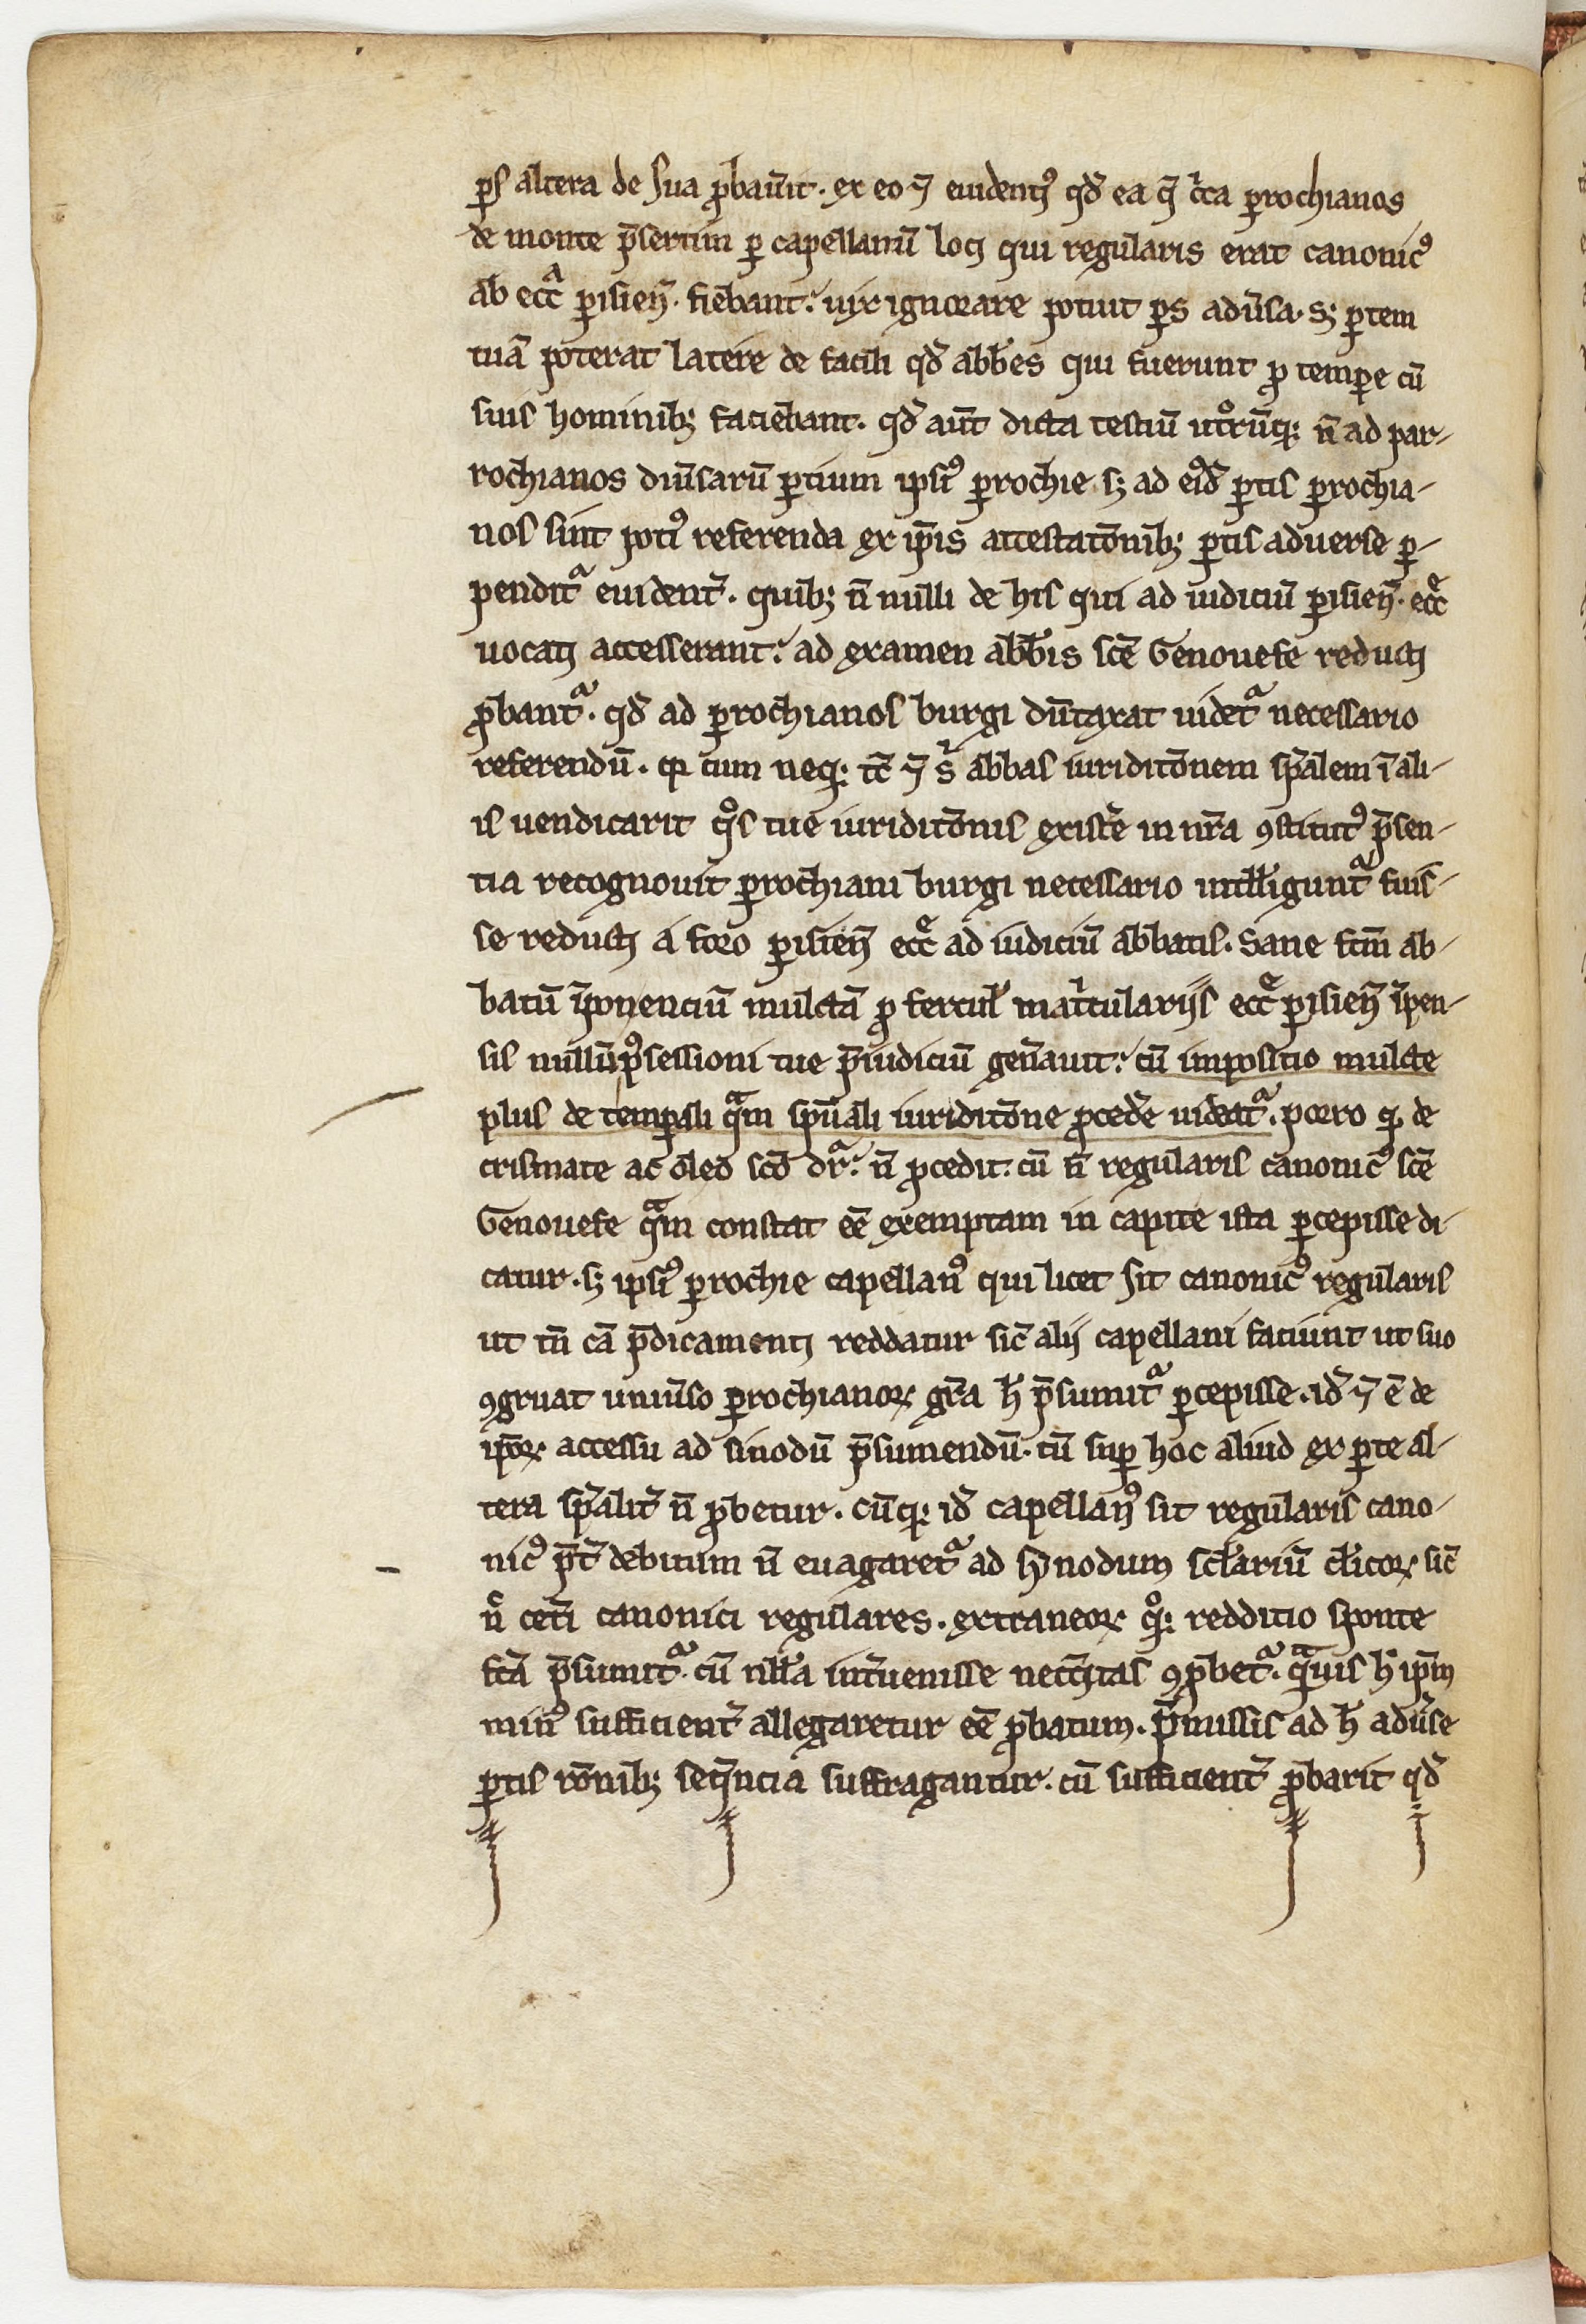 ps̄ altera de sua ꝓbauit̄. ex eo ⁊̄ euidentꝯ qd̄ ea q̄ cͥca ꝑrochianos
de monte p̄sertim ꝑ capellanū loci qui regularis erat canonicꝯ
ab ecc̄a ꝑisien̄. fiebant. uix ignorare potuit ꝑs adu̓sa. sꝫ ꝑtem
tuā poterat latere de facili qd̄ abb̄es qui fuerunt ꝓ tempore cū
suis hominibꝫ faciebant. qd̄ aut̄ dicta testiū utrūqꝫ n̄ ad par-
rochianos diu̓sarū ꝑtium ipsiꝯ ꝑrochie sꝫ ad eid̄ ꝑtis ꝑrochia-
nos sint potiꝯ referenda ex ip̄is attestat̄onibꝫ ꝑtis aduerse ꝑ-
penditᷓ euident̓. quibꝫ n̄ nulli de his qui ad iudiciū ꝑisien̄. ecc̄e
uocati accesserant. ad examen abb̄is sc̄e Genouefe reducti
ꝓbantᷓ. qd̄ ad ꝑrochianos burgi dūtaxat uidetᷓ necessario
referendū. qꝛ cum neqꝫ tc̄ ⁊̄ s̓ abbas iuridict̄onem sp̄alem ī ali-
is uendicarit qͦs tue iuridict̄onis exist̓e in nr̄a ꝯstitutꝯ p̄sen-
tia recognouit ꝑrochiani burgi necessario intell̄iguntᷓ fuis-
se reducti a foro ꝑisien̄ ecc̄e ad iudiciū abbatis. Sane fc̄m ab-
batū īponenciū mulctā ꝓ fercul̄ matͥculariis ecc̄e ꝑisien̄ īpen-
sis nullū possessioni tue p̄iudiciū gen̓auit. cū impositio mulcte
plus de temꝑali qᷓm spūali iuridict̄one ꝓced̓e uideatᷓ. porro qꝫ de
crismate ac oleo sc̄o dr̄. n̄ ꝓcedit. cū n̄ regularis canonicꝯ sc̄e
Genouefe qᷓm constat eē exemptam in capite ista ꝑcepisse di-
catur. sꝫ ipsiꝯ ꝑrochie capellanꝯ qui licet sit canonicꝯ regularis
ut tn̄ cā p̄dicamenti reddatur sic̄ alii capellani faciunt ut suo
ꝯgruat uniu̓so ꝑrochianoꝝ gr̄a h̄ p̄sumitᷓ ꝑcepisse. id̄ ⁊̄ ē de
ip̄oꝝ accessu ad sinodū p̄sumendū. cū suꝑ hoc aliud ex ꝑte al-
tera sp̄alit̓ n̄ ꝓbetur. cūqꝫ id̄ capellanꝯ sit regularis cano-
nicꝯ p̄t̓ debitum n̄ euagaretᷓ ad synodum sc̄lariū cl̓icoꝝ sic̄
n̄ cet̓i canonici regulares. extraneoꝝ qͦqꝫ redditio sponte
fc̄a p̄sumitᷓ. cū null̄a int̓uenisse necc̄itas ꝯꝓbetᷓ. qᷓuis h̄ ip̄m
minꝯ sufficient̓ allegaretur eē ꝓbatum. p̄missis ad h̄ adu̓se
ꝑtis rōnibꝫ seq̄ncia suffragantur. cū sufficient̓ ꝓbarit qd̄